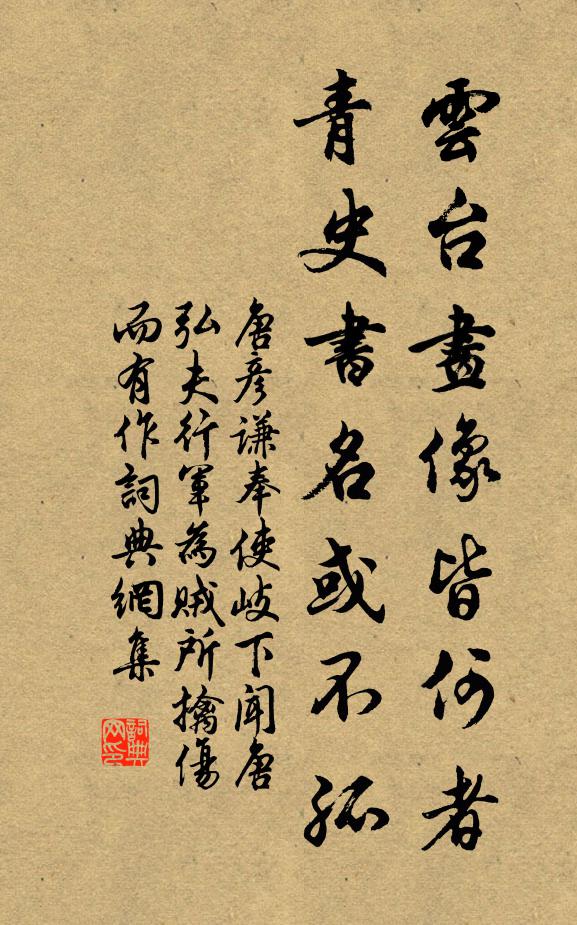 雲台畫像皆何者
青史書名或不孤
唐彥謙奉使岐下聞唐
弘夫行軍為賊所擒傷
而有作詞典網集
詞典
网印